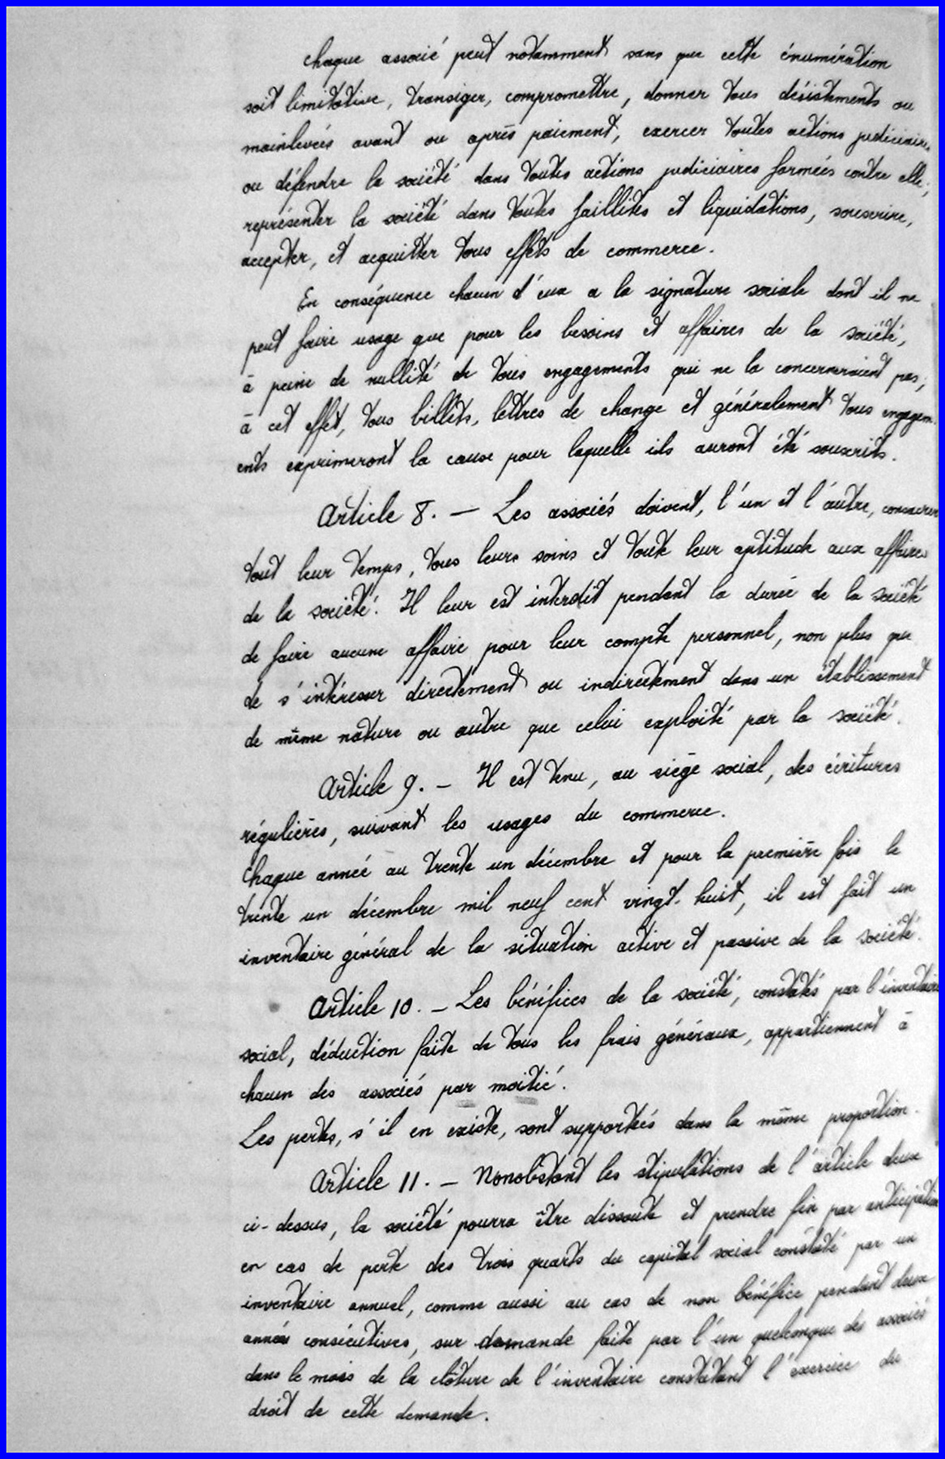 Chaque associé peut notamment sans que cette énumération
soit limitative, transiger, compromettre, donner tous désistements ou
mainlevées avant ou après paiement, exercer toutes actions judiciaires
ou défendre la société dans toutes actions judiciaires formées contre elle,
représenter la société dans toutes faillites et liquidations, souscrire,
accepter, et acquitter tous effets de commerce.
En conséquence chacun d'eux a la signature sociale dont il ne
peut faire usage que pour les besoins et affaires de la société,
à peine de nullité de tous engagements qui ne la concerneraient pas,
à cet effet, tous billets, lettres de change et généralement tous engagem-
ents exprimeront la cause pour laquelle ils auront été souscrits.
Article 8. — Les associés doivent, l'un et l'autre, consacrer
tout leur temps, tous leurs soins et toute leur aptitude aux affaires
de la société. Il leur est interdit pendant la durée de la société
de faire aucune affaire pour leur compte personnel, non plus que
de s'intéresser directement ou indirectement dans un établissement
de même nature ou autre que celui exploité par la société.
Article 9. — Il est tenu, au siège social, des écritures
régulières, suivant les usages du commerce.
Chaque année au trente un décembre et pour la première fois le
trente un décembre mil neuf cent vingt-huit, il est fait un
inventaire général de la situation active et passive de la société.
Article 10. — Les bénéfices de la société, constatés par l'inventaire
social, déduction faite de tous les frais généraux, appartiennent à
chacun des associés par moitié.
Les pertes, s'il en existe, sont supportées dans la même proportion.
Article 11. — Nonobstant les stipulations de l'article deux
ci-dessus, la société pourra être dissoute et prendre fin par anticipation
en cas de perte des trois quarts du capital social constaté par un
inventaire annuel, comme aussi au cas de non bénéfice pendant deux
années consécutives, sur demande faite par l'un quelconque des associés
dans le mois de la clôture de l'inventaire constatant l'exercice du
droit de cette demande.